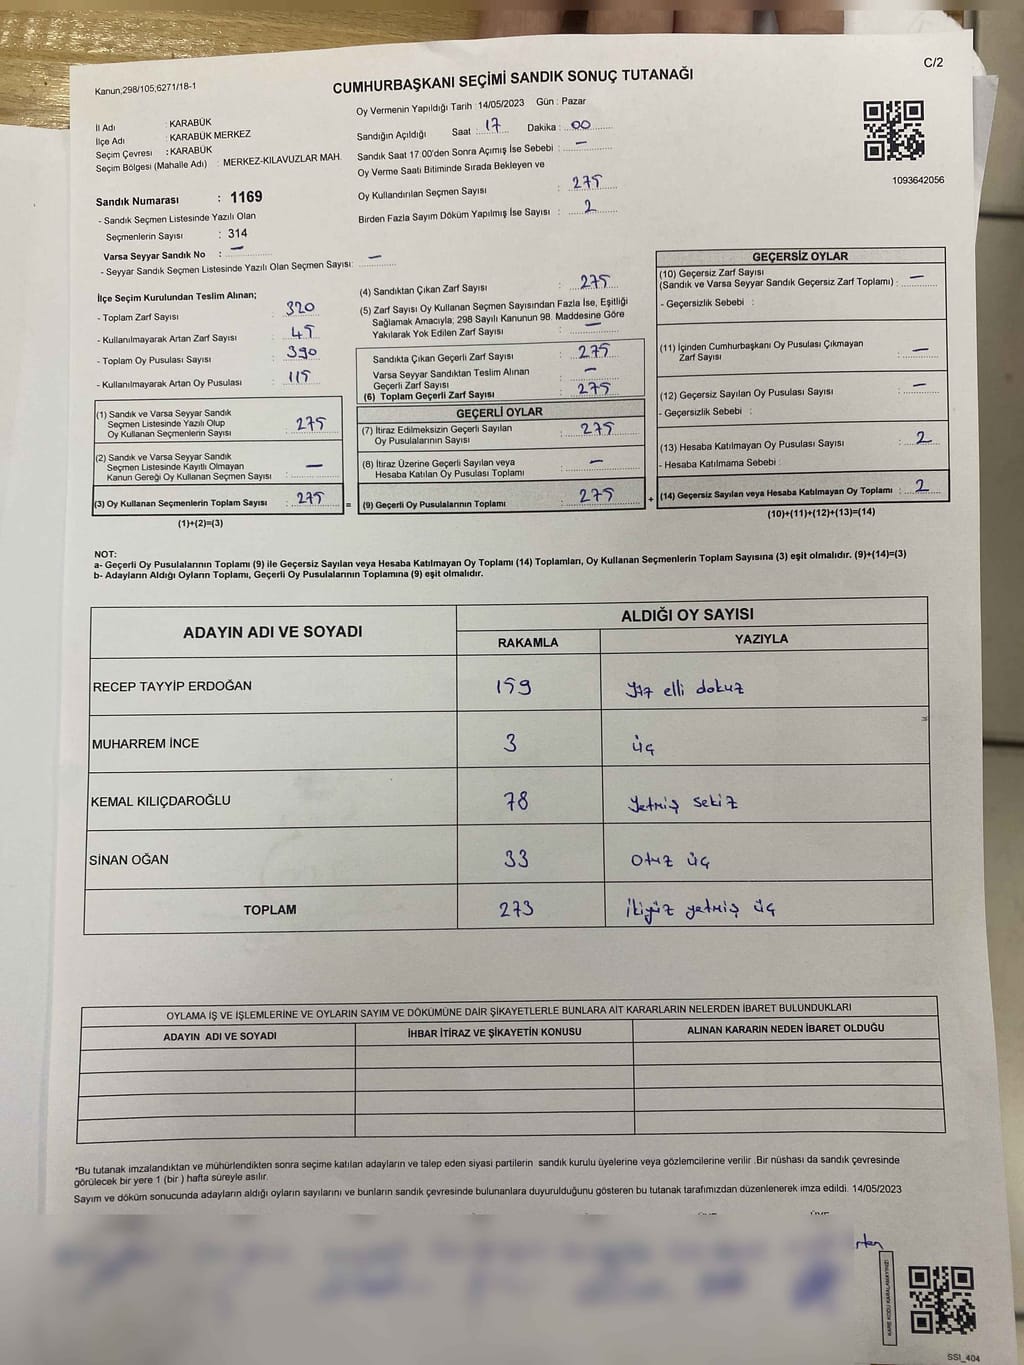 C/2
Kanun;298/105,6271/18-1
CUMHURBAŞKANI SEÇİMİ SANDIK SONUÇ TUTANAĞI
Oy Vermenin Yapıldığı Tarih : 14/05/2023 Gün : Pazar
İl Adı : KARABÜK
İlçe Adı : KARABÜK MERKEZ
Seçim Çevresi : KARABÜK
Seçim Bölgesi (Mahalle Adı) : MERKEZ-KILAVUZLAR MAH.
Sandığın Açıldığı Saat : 17 Dakika : 00
Sandık Saat 17 00'den Sonra Açımış İse Sebebi : —
Oy Verme Saati Bitiminde Sırada Bekleyen ve
Oy Kullandırılan Seçmen Sayısı : 275
Birden Fazla Sayım Döküm Yapılmış İse Sayısı : 2
1093642056
Sandık Numarası : 1169
- Sandık Seçmen Listesinde Yazılı Olan
Seçmenlerin Sayısı : 314
Varsa Seyyar Sandık No : —
- Seyyar Sandık Seçmen Listesinde Yazılı Olan Seçmen Sayısı: —
İlçe Seçim Kurulundan Teslim Alınan;
- Toplam Zarf Sayısı : 320
- Kullanılmayarak Artan Zarf Sayısı : 45
- Toplam Oy Pusulası Sayısı : 390
- Kullanılmayarak Artan Oy Pusulası : 115
(1) Sandık ve Varsa Seyyar Sandık
Seçmen Listesinde Yazılı Olup
Oy Kullanan Seçmenlerin Sayısı : 275
(2) Sandık ve Varsa Seyyar Sandık
Seçmen Listesinde Kayıtlı Olmayan
Kanun Gereği Oy Kullanan Seçmen Sayısı : —
(3) Oy Kullanan Seçmenlerin Toplam Sayısı : 275 =
(1)+(2)=(3)
(4) Sandıktan Çıkan Zarf Sayısı : 275
(5) Zarf Sayısı Oy Kullanan Seçmen Sayısından Fazla İse, Eşitliği
Sağlamak Amacıyla, 298 Sayılı Kanunun 98. Maddesine Göre
Yakılarak Yok Edilen Zarf Sayısı : —
Sandıkta Çıkan Geçerli Zarf Sayısı : 275
Varsa Seyyar Sandıktan Teslim Alınan
Geçerli Zarf Sayısı : —
(6) Toplam Geçerli Zarf Sayısı : 275
GEÇERLİ OYLAR
(7) İtiraz Edilmeksizin Geçerli Sayılan
Oy Pusulalarının Sayısı : 275
(8) İtiraz Üzerine Geçerli Sayılan veya
Hesaba Katılan Oy Pusulası Toplamı : —
(9) Geçerli Oy Pusulalarının Toplamı : 275 +
GEÇERSİZ OYLAR
(10) Geçersiz Zarf Sayısı
(Sandık ve Varsa Seyyar Sandık Geçersiz Zarf Toplamı) : —
- Geçersizlik Sebebi :
(11) İçinden Cumhurbaşkanı Oy Pusulası Çıkmayan
Zarf Sayısı : —
(12) Geçersiz Sayılan Oy Pusulası Sayısı : —
- Geçersizlik Sebebi :
(13) Hesaba Katılmayan Oy Pusulası Sayısı : 2
- Hesaba Katılmama Sebebi :
(14) Geçersiz Sayılan veya Hesaba Katılmayan Oy Toplamı : 2
(10)+(11)+(12)+(13)=(14)
NOT:
a- Geçerli Oy Pusulalarının Toplamı (9) ile Geçersiz Sayılan veya Hesaba Katılmayan Oy Toplamı (14) Toplamları, Oy Kullanan Seçmenlerin Toplam Sayısına (3) eşit olmalıdır. (9)+(14)=(3)
b- Adayların Aldığı Oyların Toplamı, Geçerli Oy Pusulalarının Toplamına (9) eşit olmalıdır.
ADAYIN ADI VE SOYADI
ALDIĞI OY SAYISI
RAKAMLA YAZIYLA
RECEP TAYYİP ERDOĞAN 159 yüz elli dokuz
MUHARREM İNCE 3 üç
KEMAL KILIÇDAROĞLU 78 yetmiş sekiz
SİNAN OĞAN 33 otuz üç
TOPLAM 273 ikiyüz yetmiş üç
OYLAMA İŞ VE İŞLEMLERİNE VE OYLARIN SAYIM VE DÖKÜMÜNE DAİR ŞİKAYETLERLE BUNLARA AİT KARARLARIN NELERDEN İBARET BULUNDUKLARI
ADAYIN ADI VE SOYADI İHBAR İTİRAZ VE ŞİKAYETİN KONUSU ALINAN KARARIN NEDEN İBARET OLDUĞU
*Bu tutanak imzalandıktan ve mühürlendikten sonra seçime katılan adayların ve talep eden siyasi partilerin sandık kurulu üyelerine veya gözlemcilerine verilir .Bir nüshası da sandık çevresinde
görülecek bir yere 1 (bir ) hafta süreyle asılır.
Sayım ve döküm sonucunda adayların aldığı oyların sayılarını ve bunların sandık çevresinde bulunanlara duyurulduğunu gösteren bu tutanak tarafımızdan düzenlenerek imza edildi. 14/05/2023
KARE KODU KARALAMAYINIZ!
SSI_404